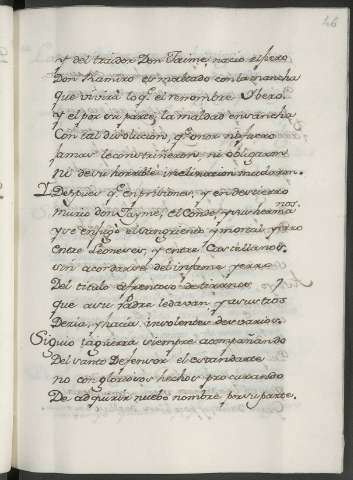 46
y del traidor Don Jaime, nacio el fiero
Don Ramiro es malvado con la mancha
que vivirá lo q.e el renombre Ybero
y el por su parte, la maldad ensancha
Con tal disolucion, q.e onor ni fuero
jamas le constriñeron, ni obligaron
ni de su horrible inclinacion mudaron.
Despues q.e en prisiones, y en destierro
murio don Jayme, el Conde y sus hermanos
y se enjugó el sangriento y mortal yerro
entre Leoneses, y entre Castellanos.
sin acordarse del infame yerro
Del titulo afrentoso de tiranos
que a su Padre le davan, y a sus tios
Dezia, y hacia insolentes desvarios.
Siguio la guerra siempre acompañando
Del santo Defensor el estandarte
no con gloriosos hechos procurando
De adquirir nuebo nombre por su parte.